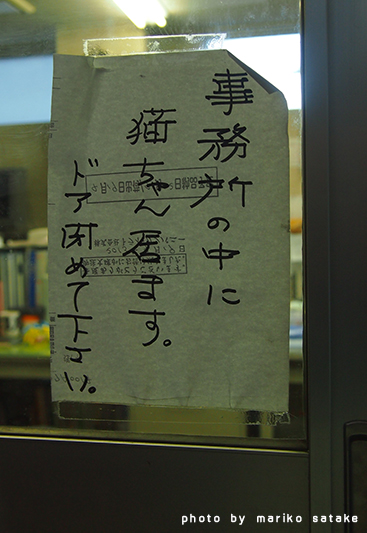 事務所の中に
猫ちゃん居ます。
ドア閉めて下さい。
photo by mariko satake